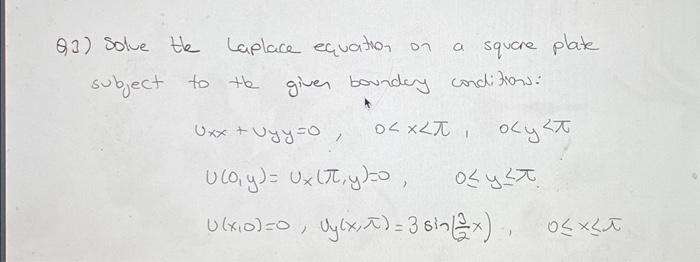 Q3) Solve the Laplace equation on a square plate
subject to the given boundary conditions:
Uxx + Uyy = 0 , 0 < x < π , 0 < y < π
U(0,y) = Ux(π,y) = 0 , 0 ≤ y ≤ π.
U(x,0) = 0 , Uy(x,π) = 3 sin(3/2 x) , 0 ≤ x ≤ π